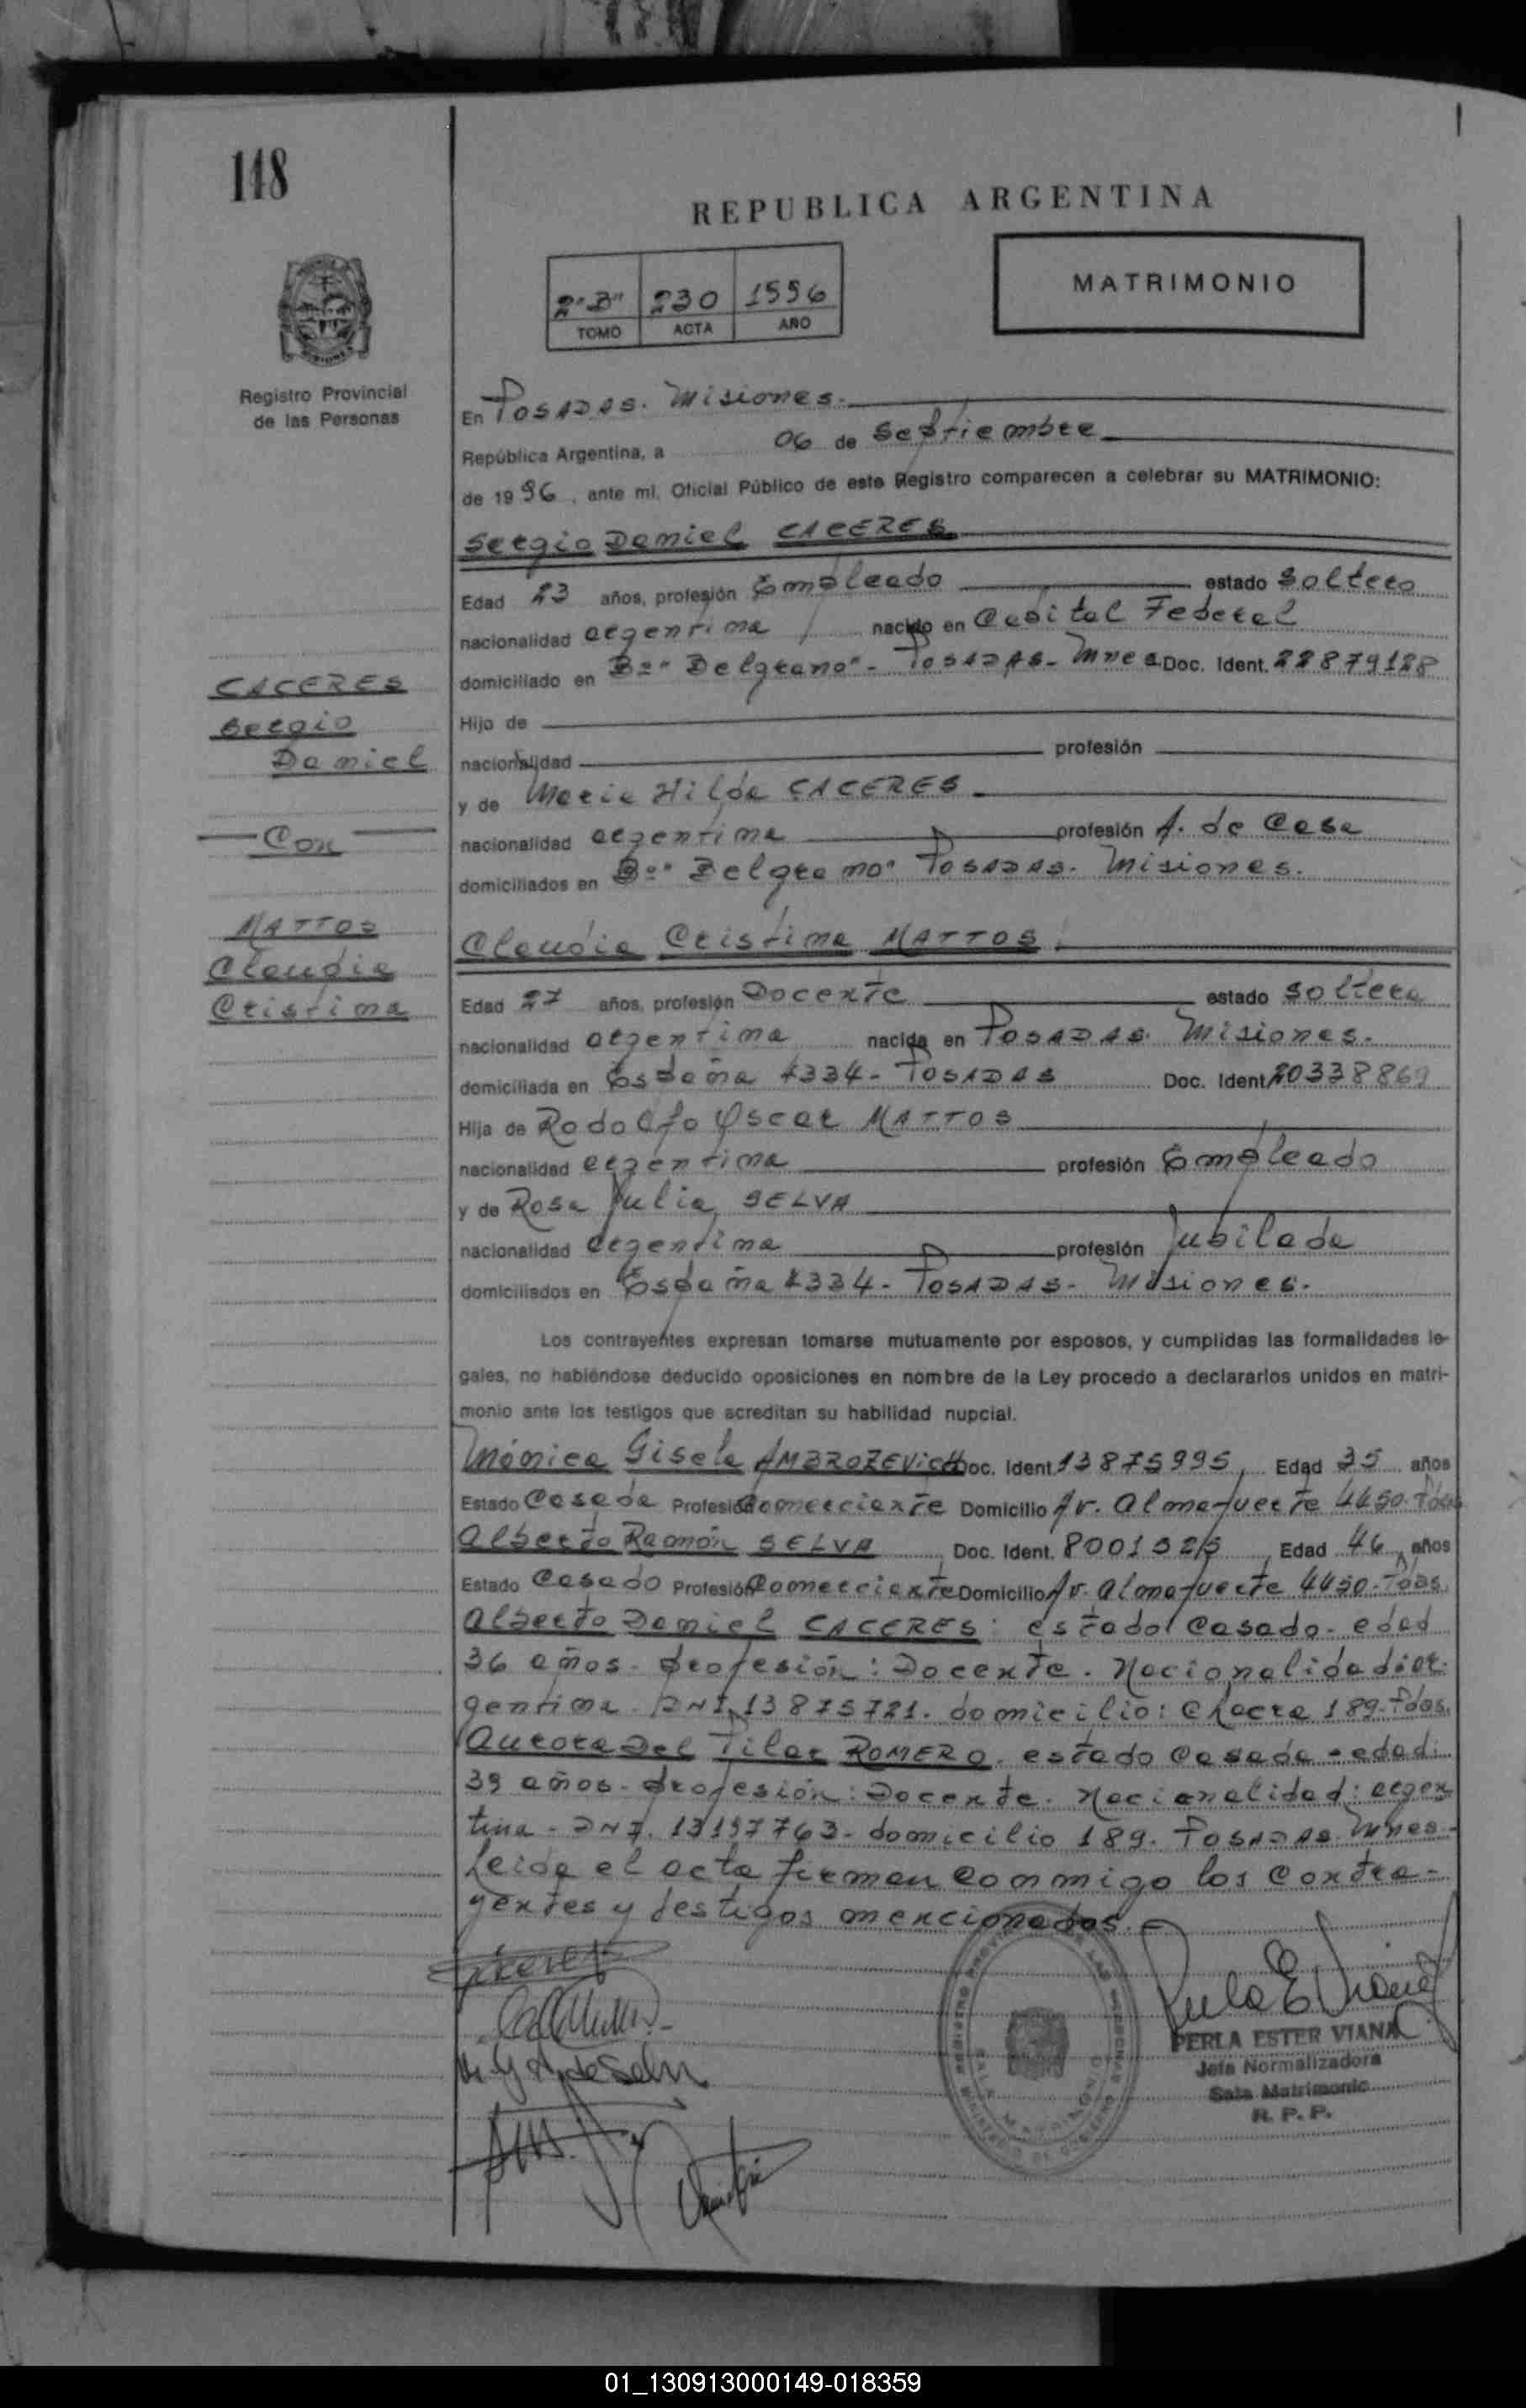 148
REPUBLICA ARGENTINA
2º "B" 230 1996
TOMO ACTA AÑO
MATRIMONIO
Registro Provincial
de las Personas
En POSADAS. Misiones.
República Argentina, a 06 de Septiembre
de 1996, ante mí, Oficial Público de este Registro comparecen a celebrar su MATRIMONIO:
Sergio Daniel CACERES
Edad 23 años, profesión Empleado estado Soltero
nacionalidad argentina nacido en Capital Federal
domiciliado en Bº "Belgrano" - POSADAS - Mnes Doc. Ident. 22879128
CACERES
Sergio
Daniel
Con
MATTOS
Claudia
Cristina
Hijo de
nacionalidad profesión
y de Maria Hilda CACERES
nacionalidad argentina profesión A. de Casa
domiciliados en Bº "Belgrano" POSADAS. Misiones.
Claudia Cristina MATTOS
Edad 27 años, profesión Docente estado Soltera
nacionalidad argentina nacida en POSADAS. Misiones.
domiciliada en España 1334 - POSADAS Doc. Ident 20338869
Hija de Rodolfo Oscar MATTOS
nacionalidad argentina profesión Empleado
y de Rosa Julia SELVA
nacionalidad argentina profesión Jubilada
domiciliados en España 1334 - POSADAS - Misiones.
Los contrayentes expresan tomarse mutuamente por esposos, y cumplidas las formalidades le-
gales, no habiéndose deducido oposiciones en nombre de la Ley procedo a declararlos unidos en matri-
monio ante los testigos que acreditan su habilidad nupcial.
Mónica Gisela AMBROZEVICH Doc. Ident. 13875995, Edad 35 años
Estado Casada Profesión Comerciante Domicilio Av. Almafuerte 4450. Pdas
Alberto Ramón SELVA Doc. Ident. , Edad 46 años
Estado Casado Profesión Comerciante Domicilio Av. Almafuerte 4450 - Pdas.
Alberto Daniel CACERES: estado Casado - edad
36 años - profesión: Docente. Nacionalidad: ar-
gentina. DNI. 13875721. domicilio: Chacra 189. Pdas.
Aurora Del Pilar ROMERO. estado Casada - edad:
39 años - profesión: Docente. Nacionalidad: argen
tina - DNI. 13197763 - domicilio 189. POSADAS. Mnes.
Leida el acta firman conmigo los contra-
yentes y testigos mencionados.
PERLA ESTER VIANA
Jefa Normalizadora
Sala Matrimonio
R. P. P.
01_130913000149-018359